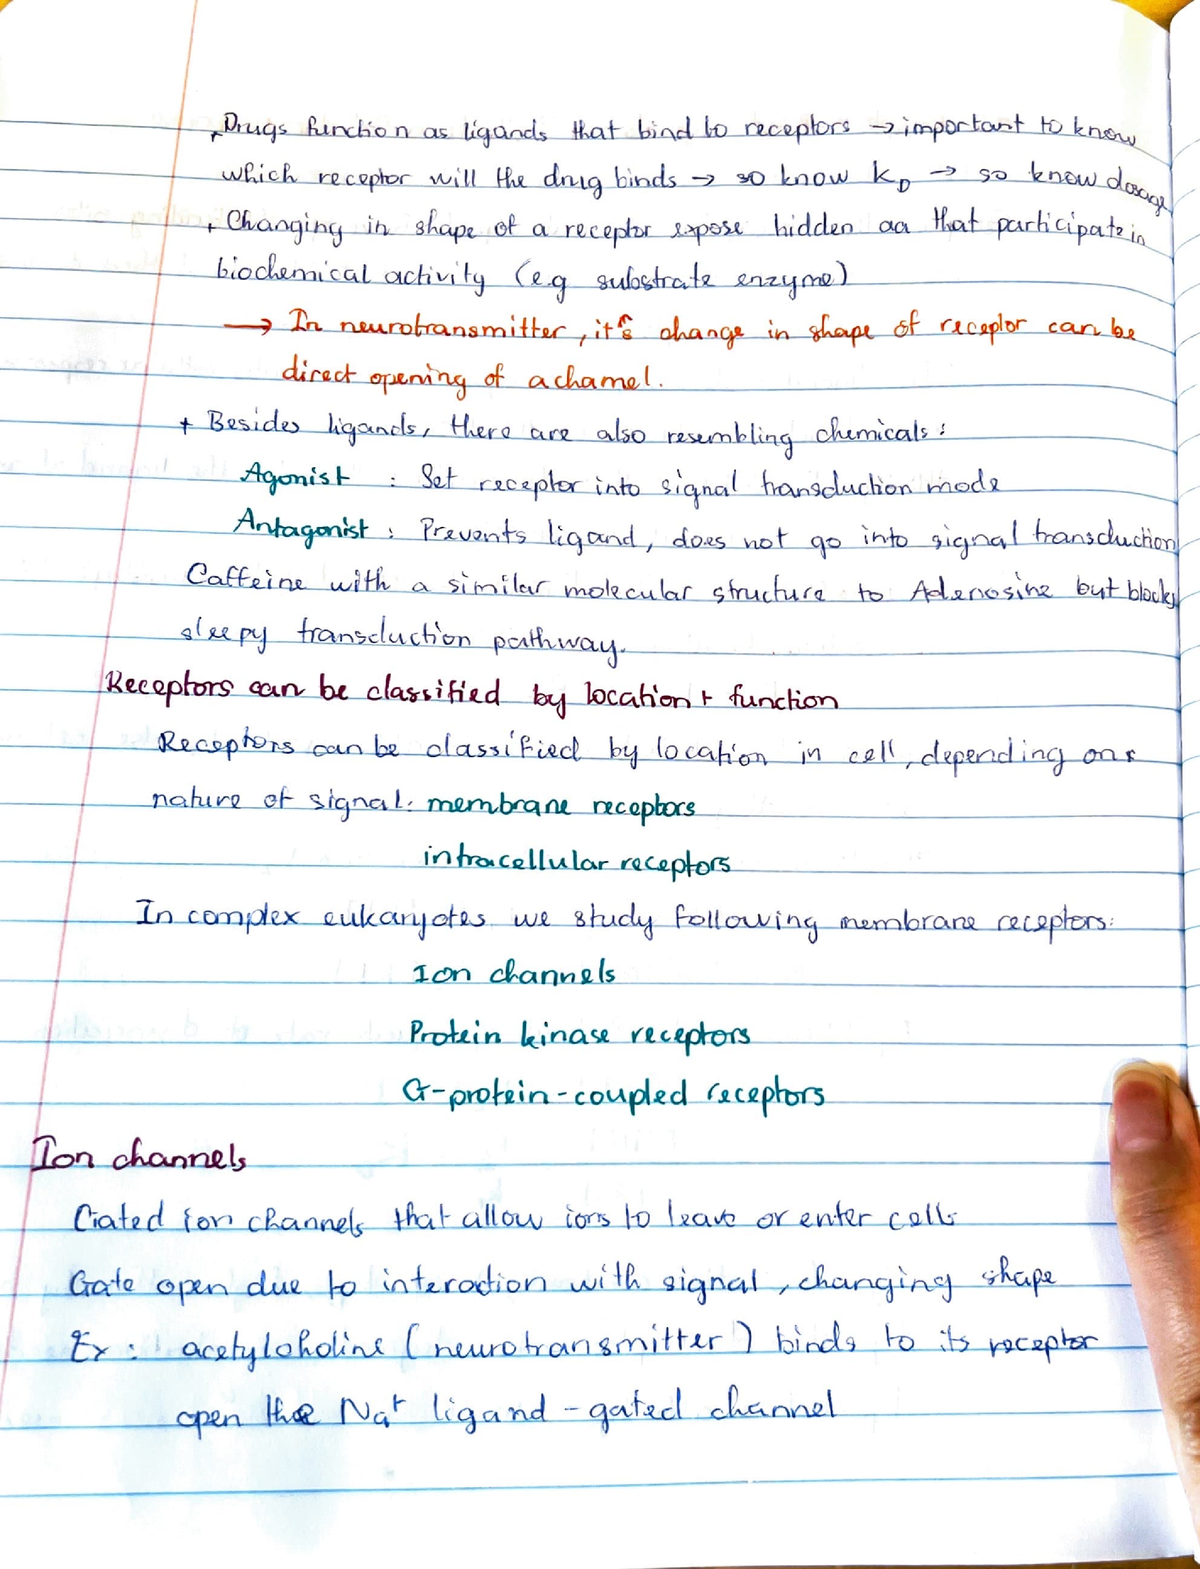 + Drugs function as ligands that bind to receptors → important to know
which receptor will the drug binds → so know KD → so know dosage
+ Changing in shape of a receptor expose hidden aa that participate in
biochemical activity (e.g substrate enzyme)
→ In neurotransmitter, it's change in shape of receptor can be
direct opening of a channel.
+ Besides ligands, there are also resembling chemicals:
Agonist : Set receptor into signal transduction mode
Antagonist : Prevents ligand, does not go into signal transduction
Caffeine with a similar molecular structure to Adenosine but blocks
sleepy transduction pathway.
Receptors can be classified by location + function
Receptors can be classified by location in cell, depending on
nature of signal: membrane receptors
intracellular receptors
In complex eukaryotes we study following membrane receptors:
Ion channels
Protein kinase receptors
G-protein-coupled receptors
Ion channels
Gated ion channels that allow ions to leave or enter cells
Gate open due to interaction with signal, changing shape
Ex: acetylcholine (neurotransmitter) binds to its receptor
open the Na+ ligand-gated channel